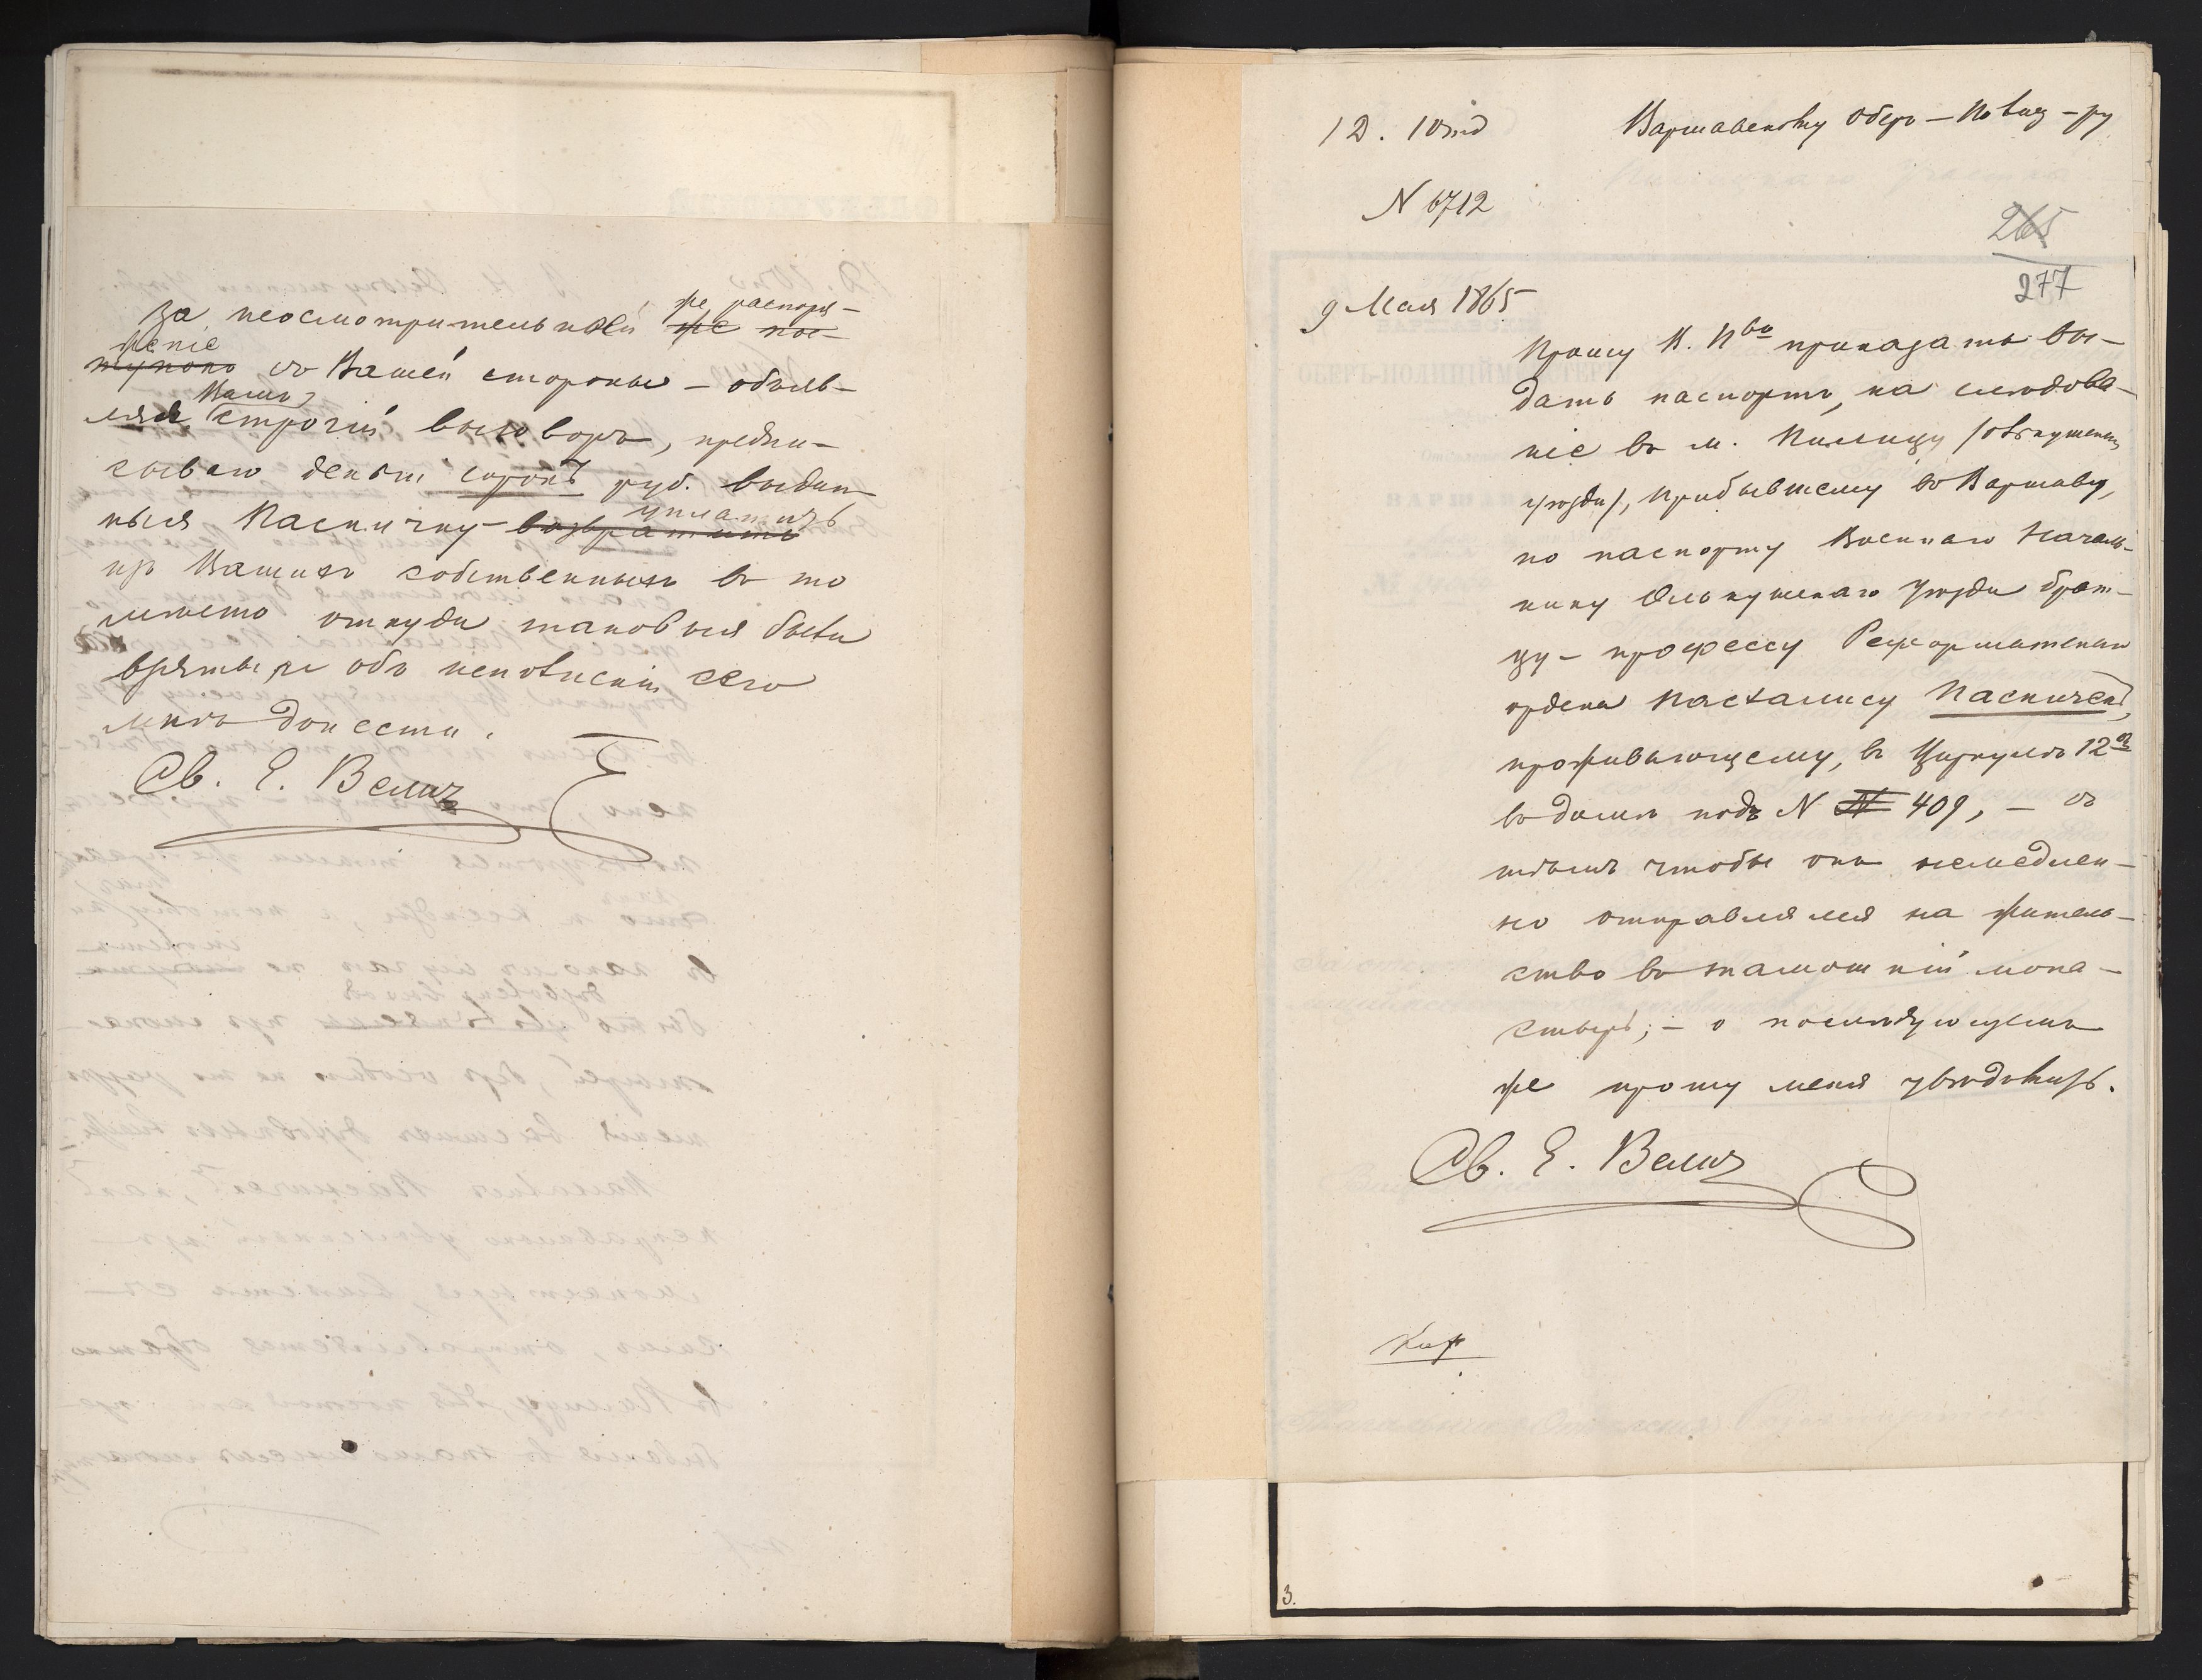 же распоря-
за неосмотрительное же пос-
женіе
тупокъ съ Вашей стороны — объяв-
Вамъ
ляя строгій выговоръ, предпи-
сываю деньги сорокъ руб. выдан-
уплатить
ныя Паспичку — возвратить
изъ Вашихъ собственныхъ въ то
мѣсто откуда таковыя были
взяты и объ исполненіи сего
мнѣ донести.
Св. Е. Велич
1 Д. 1 Отд
Варшавскому Оберъ-Полиц-ру
N 6712
265
277
9 Мая 1865
Прошу В. П-во приказать вы-
дать паспортъ, на слѣдова-
ніе въ м. Пилицу /Олькушскаго
уѣзда/, прибывшему въ Варшаву,
по паспорту Военнаго Началь-
ника Олькушскаго Уѣзда брат-
цу — профессу Реформатскаго
ордена Пасхалису Паспичекъ,
проживающему, въ Циркулѣ 12
въ домѣ подъ N N 409, — съ
тѣмъ чтобы онъ немедлен-
но отправлялся на житель-
ство въ тамошній мона-
стырь; — о послѣдующемъ
же прошу меня увѣдомить.
Св. Е. Велич
3.